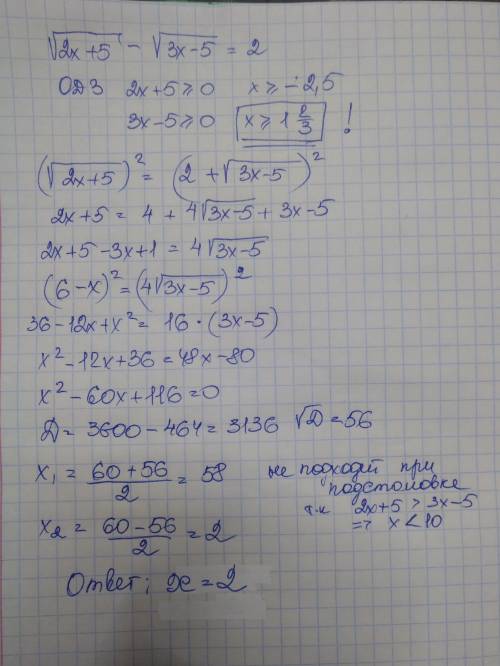 √(2x+5) − √(3x−5) = 2
ОДЗ 2x+5 ⩾ 0 x ⩾ −2,5
3x−5 ⩾ 0 x ⩾ 1 2/3 !
(√(2x+5))² = (2 + √(3x−5))²
2x+5 = 4 + 4√(3x−5) + 3x−5
2x+5−3x+1 = 4√(3x−5)
(6−x)² = (4√(3x−5))²
36−12x+x² = 16·(3x−5)
x²−12x+36 = 48x−80
x²−60x+116=0
D = 3600−464 = 3136 √D = 56
x₁ = (60+56)/2 = 58 не подходит при
подстановке
т.к 2x+5 > 3x−5
=> x < 10
x₂ = (60−56)/2 = 2
Ответ; x = 2